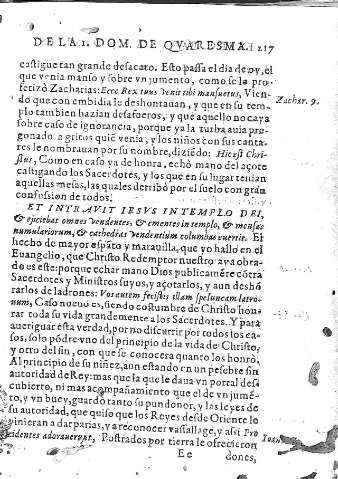 DE LA I. DOM. DE QVARESMA. 217
castigue tan grande desacato. Esto passa el dia de oy, el
que venia manso y sobre vn jumento, como se lo pro-
fetizò Zacharias: Ecce Rex tuus venit tibi mansuetus, Vien-
Zachar. 9.
do que con embidia le deshontauan, y que en su tem-
plo tambien hazian desafueros, y que aquello no caya
sobre caso de ignorancia, porque ya la turba auia pre-
gonado a gritos quiē venia, y los niños con sus canta-
res le nombrauan por su nombre, diziēdo: Hic est Chri-
stus, Como en caso ya de honra, echò mano del açote
castigando los Sacerdotes, y los que en su lugar tenian
aquellas mesas, las quales derribò por el suelo con gran
confusion de todos.
ET INTRAVIT IESVS IN TEMPLO DEI,
& ejiciebat omnes vendentes, & ementes in templo, & mensas
numulariorum, & cathedras vendentium columbas euertit. El
hecho de mayor espāto y marauilla, que yo hallo en el
Euangelio, que Christo Redemptor nuestro aya obra-
do es este: porque echar mano Dios publicamēte cōtra
Sacerdotes y Ministros suyos, y açotarlos, y aun deshō
rarlos de ladrones: Vos autem fecistis illam speluncam latro-
num, Caso nuevo es, siendo costumbre de Christo hon-
rar toda su vida grandemente a los Sacerdotes. Y para
aueriguar esta verdad, por no discurrir por todos los ca-
sos, solo pōdrè vno del principio de la vida de Christo,
y otro del fin, con que se conocera quanto los honrò.
Al principio de su niñez, aun estando en vn pesebre sin
autoridad de Rey: mas que la que le daua vn portal des-
cubierto, ni mas acompañamiento que el de vn jumē-
to, y vn buey, guardò tanto su pundonor, y las leyes de
su autoridad, que quiso que los Reyes desde Oriente le
vinieran a dar parias, y a reconocer vassallage, y assi Pro
cidentes adorauerunt, Postrados por tierra le ofrecieron
Ee dones,